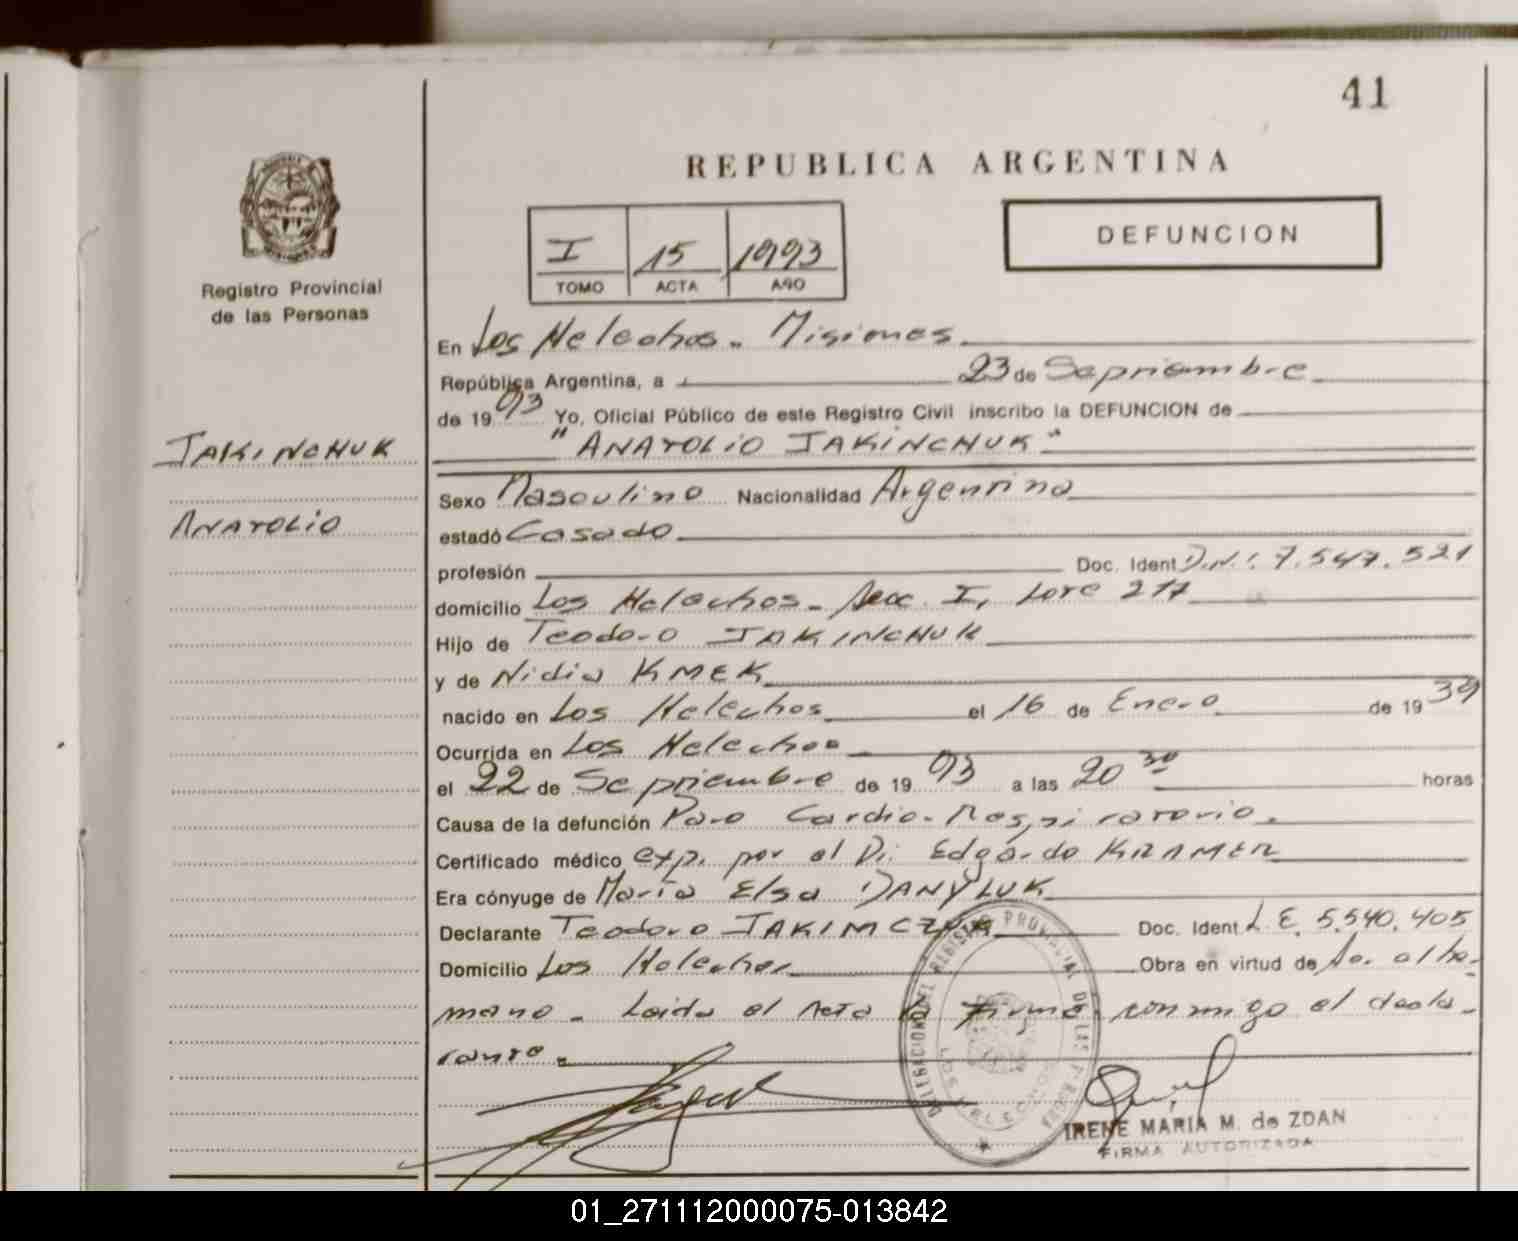 41
REPUBLICA ARGENTINA
DEFUNCION
I 15 1993
TOMO ACTA AÑO
Registro Provincial
de las Personas
En Los Helechos - Misiones
República Argentina, a 23 de Septiembre
de 1993 Yo, Oficial Público de este Registro Civil inscribo la DEFUNCION de
JAKINCHUK
"ANATOLIO JAKINCHUK"
Sexo Masculino Nacionalidad Argentina
ANATOLIO
estado Casado
profesión Doc. Ident D.N.I. 7.547.521
domicilio Los Helechos - Secc. I, Lote 217
Hijo de Teodoro JAKINCHUK
y de Nidia KMEK
nacido en Los Helechos el 16 de Enero de 1939
Ocurrida en Los Helechos
el 22 de Septiembre de 1993 a las 20 30 horas
Causa de la defunción Paro Cardio-Respiratorio.
Certificado médico exp. por el Dr. Edgardo KRAMER
Era cónyuge de María Elsa DANYLUK
Declarante Teodoro JAKIMCZUK Doc. Ident L.E. 5.540.405
Domicilio Los Helechos Obra en virtud de So. al he-
mano - Leida el Acta la Firma conmigo el decla-
rante.
DELEGACION DEL REGISTRO PROVINCIAL DE LAS PERSONAS
LOS HELECHOS
IRENE MARIA M. de ZDAN
FIRMA AUTORIZADA
01_271112000075-013842